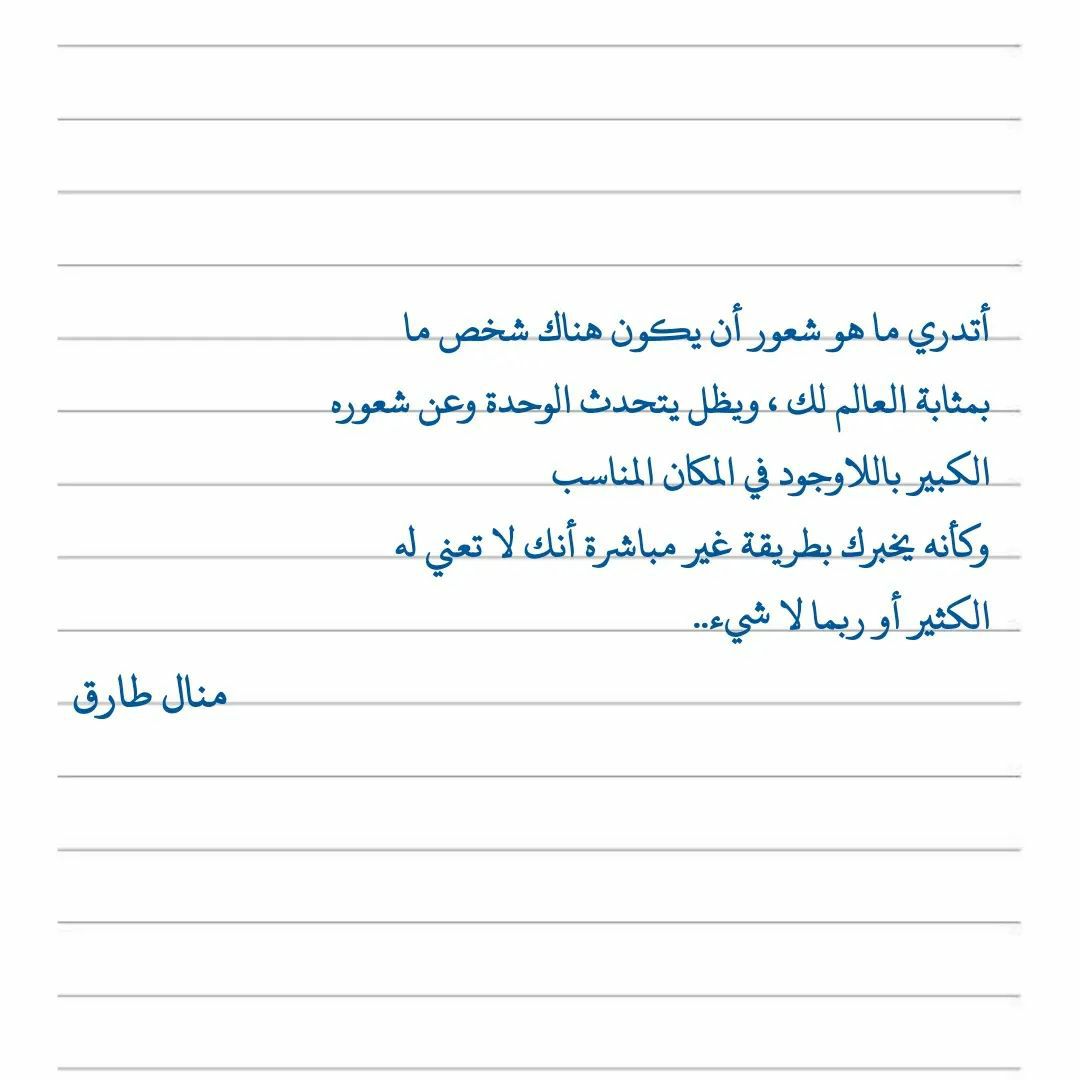 أتدري ما هو شعور أن يكون هناك شخص ما
بمثابة العالم لك ، ويظل يتحدث الوحدة وعن شعوره
الكبير باللاوجود في المكان المناسب
وكأنه يخبرك بطريقة غير مباشرة أنك لا تعني له
الكثير أو ربما لا شيء..
منال طارق